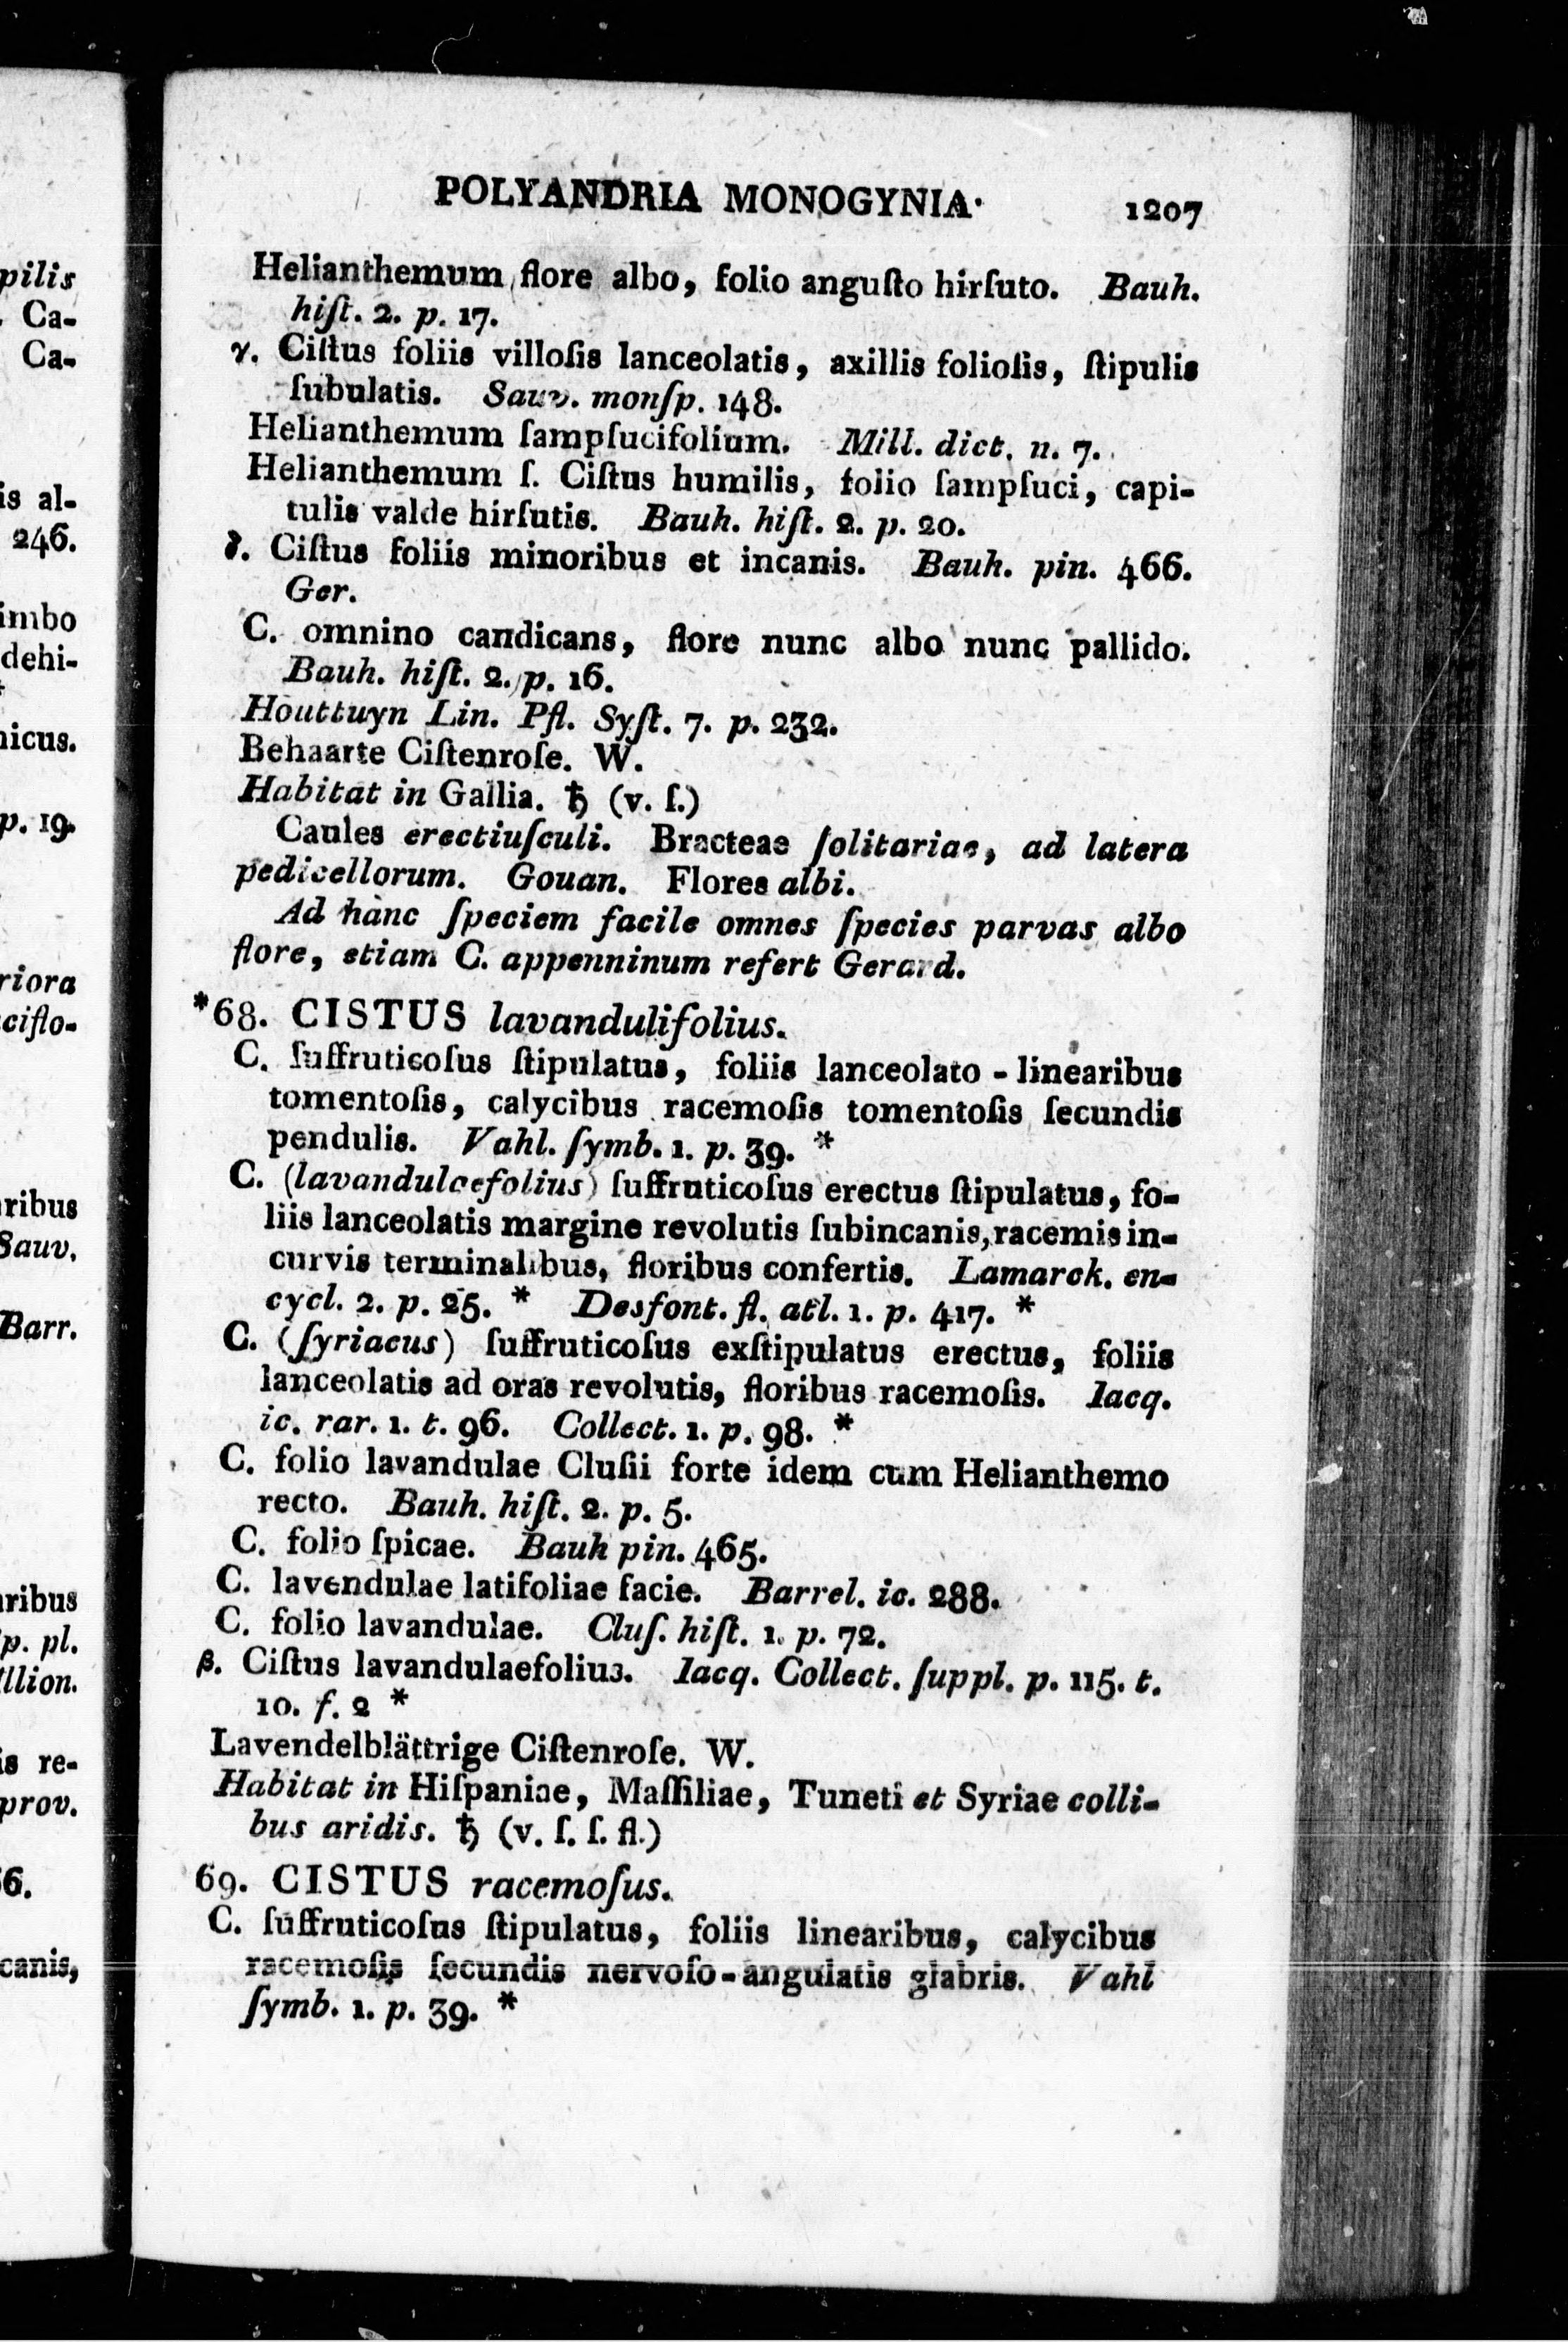 POLYANDRIA MONOGYNIA· 1207
Helianthemum flore albo, folio anguſto hirſuto. Bauh.
hiſt. 2. p. 17.
γ. Ciſtus foliis villoſis lanceolatis, axillis folioſis, ſtipulis
ſubulatis. Sauv. monſp. 148.
Helianthemum ſampſucifolium. Mill. dict. n. 7.
Helianthemum ſ. Ciſtus humilis, folio ſampſuci, capi-
tulis valde hirſutis. Bauh. hiſt. 2. p. 20.
δ. Ciſtus foliis minoribus et incanis. Bauh. pin. 466.
Ger.
C. omnino candicans, flore nunc albo nunc pallido.
Bauh. hiſt. 2. p. 16.
Houttuyn Lin. Pfl. Syſt. 7. p. 232.
Behaarte Ciſtenroſe. W.
Habitat in Gallia. ♄ (v. ſ.)
Caules erectiuſculi. Bracteae ſolitariae, ad latera
pedicellorum. Gouan. Flores albi.
Ad hanc ſpeciem facile omnes ſpecies parvas albo
flore, etiam C. appenninum refert Gerard.
*68. CISTUS lavandulifolius.
C. ſuffruticoſus ſtipulatus, foliis lanceolato-linearibus
tomentoſis, calycibus racemoſis tomentoſis ſecundis
pendulis. Vahl. ſymb. 1. p. 39. *
C. (lavandulaefolius) ſuffruticoſus erectus ſtipulatus, fo-
liis lanceolatis margine revolutis ſubincanis, racemis in-
curvis terminalibus, floribus confertis. Lamarck. en-
cycl. 2. p. 25. * Desfont. fl. atl. 1. p. 417. *
C. (ſyriacus) ſuffruticoſus exſtipulatus erectus, foliis
lanceolatis ad oras revolutis, floribus racemoſis. Iacq.
ic. rar. 1. t. 96. Collect. 1. p. 98. *
C. folio lavandulae Cluſii forte idem cum Helianthemo
recto. Bauh. hiſt. 2. p. 5.
C. folio ſpicae. Bauh pin. 465.
C. lavendulae latifoliae facie. Barrel. ic. 288.
C. folio lavandulae. Cluſ. hiſt. 1. p. 72.
β. Ciſtus lavandulaefolius. Iacq. Collect. ſuppl. p. 115. t.
10. f. 2 *
Lavendelblättrige Ciſtenroſe. W.
Habitat in Hiſpaniae, Maſſiliae, Tuneti et Syriae colli-
bus aridis. ♄ (v. ſ. ſ. fl.)
69. CISTUS racemoſus.
C. ſuffruticoſus ſtipulatus, foliis linearibus, calycibus
racemoſis ſecundis nervoſo-angulatis glabris. Vahl
ſymb. 1. p. 39. *
pilis
Ca-
Ca-
is al-
246.
imbo
dehi-
nicus.
p. 19.
riora
ciflo-
ribus
Sauv.
Barr.
ribus
p. pl.
llion.
is re-
prov.
6.
canis,